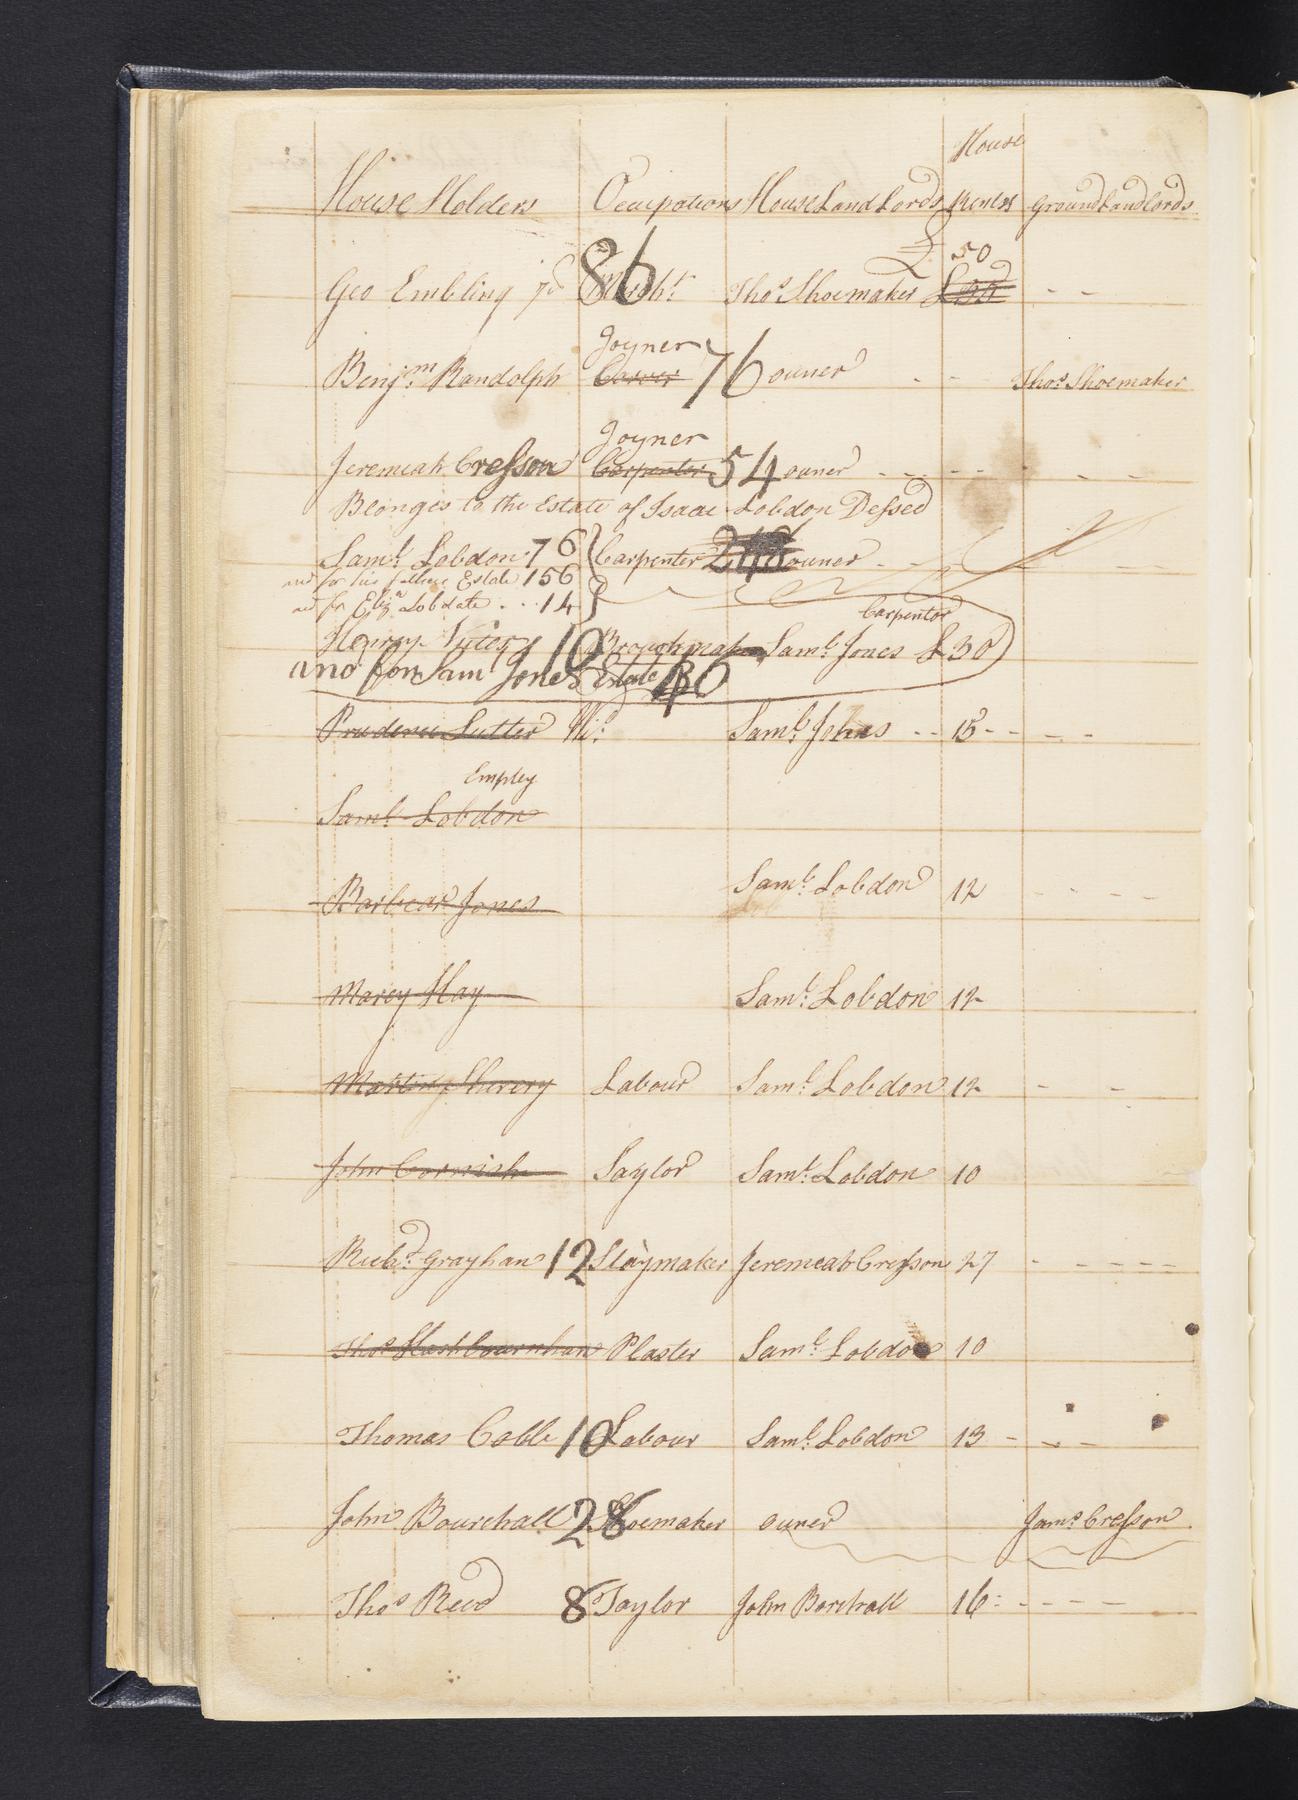 House
House Holders Occupations House Land Lords Rents Ground Land Lords
£ 50
Geo Embling 86 Thos Shoemaker
Joyner
Benjm Randolph Carver 76 owner - - Thos Shoemaker
Joyner
Jeremeah Cresson Carpenter 54 owner - - - - - - -
Blonges to the Estate of Isaac Lobdon Dessed
Saml Lobdon 76 Carpenter owner
and for his fathers Estate 156
and for Eliz Lobdate . . . 14
Carpentor
Henry 10 Saml Jones £30
and for Sam Jones Estate
Prudence Sutter Wid Saml Johns - - 15 - - - -
Emptey
Saml Lobdon
Barbear Jones Saml Lobdon 12 - - - -
Marey Hay Saml Lobdon 12
Labour Saml Lobdon 12 - -
John Cornish Saylor Saml Lobdon 10
Richd Grayhan 12 Staymaker Jeremeah Cresson 27 - - - - - -
Thos Plaster Saml Lobdon 10
Thomas Cobb 10 Labour Saml Lobdon 13 - - -
John Bourchall 28 Shoemaker owner Jams Cresson
Thos Reed 8 Taylor John Borchall 16 - - - - -